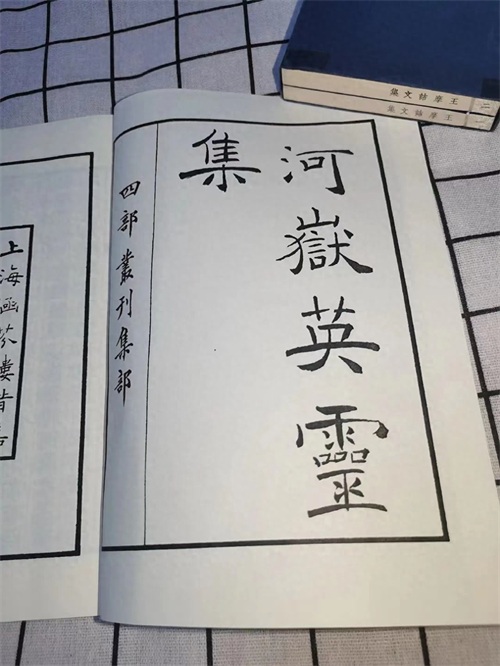 河嶽英靈
集
四部叢刊集部
上海涵芬樓
王摩詰文集 二
王摩詰文集 一